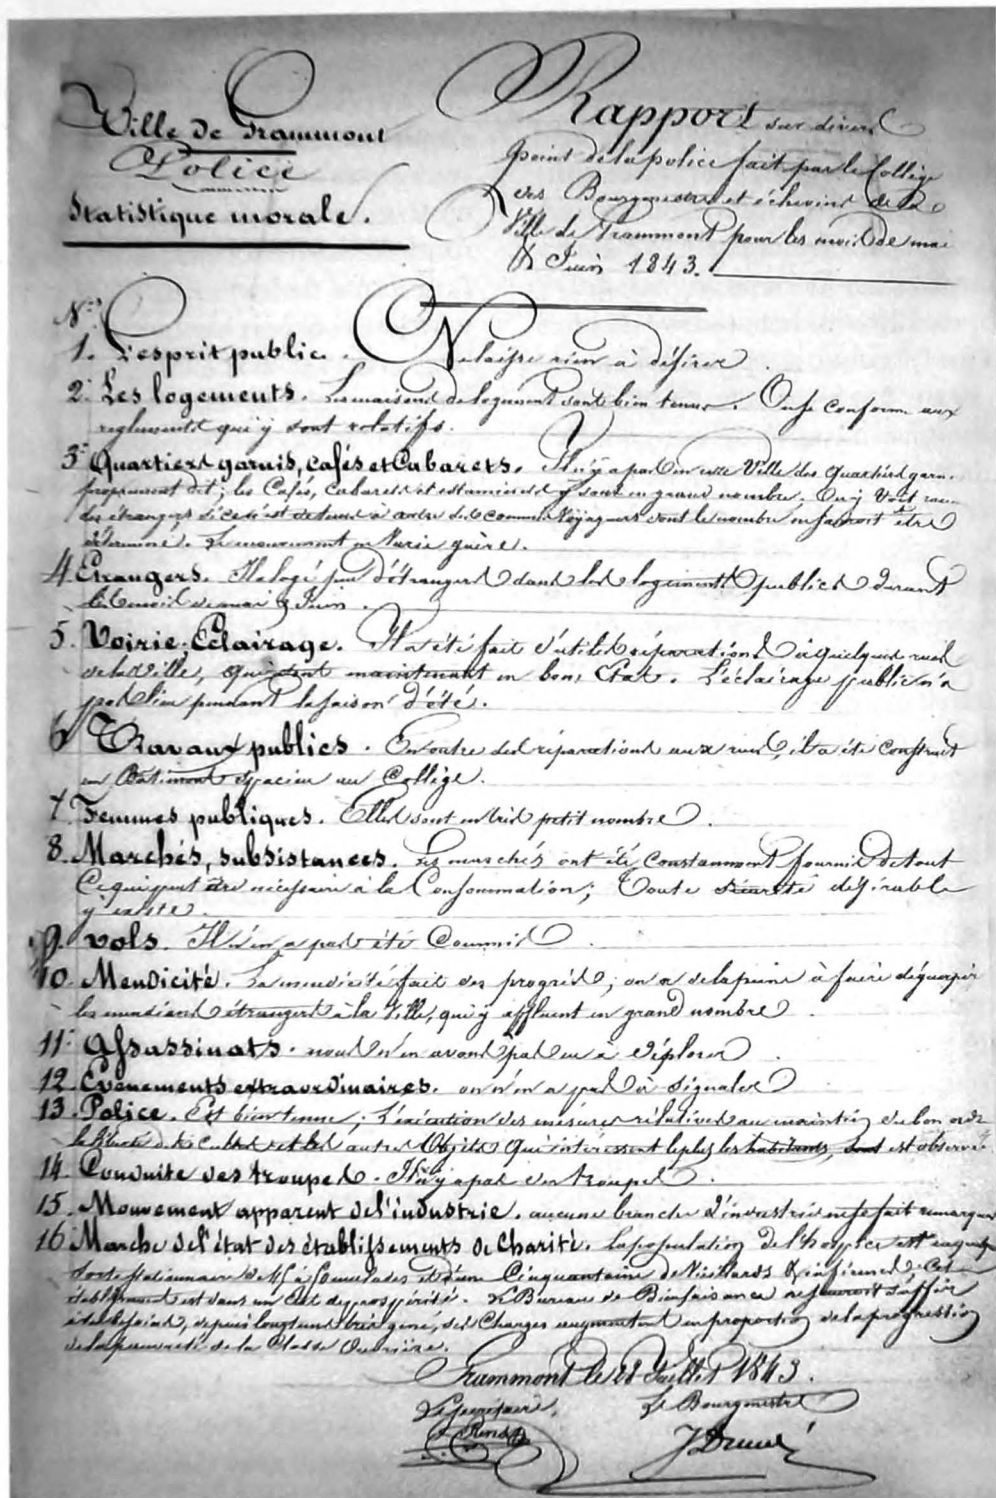 Ville de Grammont
Police
Statistique morale.
Rapport sur divers
point de la police fait par le Collège
des Bourgmestre et échevins de la
Ville de Grammont pour les mois de mai
& Juin 1843.
Nos
1. L'esprit public. Ne laisse rien à désirer
2. Les logements. Les maisons de logement sont bien tenues. On se conforme aux
reglements qui y sont relatifs.
3. Quartiers garnis, cafés et Cabarets. Il n'y a pas en cette Ville des Quartiers garn.
proprement dit; les Cafés, cabarets et estaminets y sont en grand nombre. On y voit
des étrangers si ce n'est de tems à autre des commis Voyageurs dont le nombre ne sauroit être
déterminé. Le mouvement ne Varie guère.
4. Etrangers. Il a logé peu d'étrangers dans les logements publics durant
les mois de mai & Juin.
5. Voirie, Eclairage. Il a été fait d'utiles réparations à quelques rues
de la Ville, qui sont maintenant en bon Etat. L'éclairage public n'a
pas lieu pendant la saison d'été.
6. Travaux publics. En outre des réparations aux rues, il a été construit
un Bâtiment spacieu au Collège.
7. Femmes publiques. Elles sont en très petit nombre.
8. Marchés, subsistances. Les marchés ont été constamment fournis de tout
ce qui peut être nécessaire à la Consommation; Toute sûreté désirable
y existe.
9. Vols. Il n'en a pas été Commis
10. Mendicité. La mendicité fait des progrès; on a de la peine à faire déguerpir
les mendians étrangers à la Ville, qui y affluent en grand nombre.
11. Assassinats. nous n'en avons pas eu à déplorer
12. Evènements extraordinaires. on n'en a pas à signaler
13. Police. Est bien tenue; L'exécution des mésures rélatives au maintien du bon ordre
la liberté des Cultes et les autres Objets qui intéressent le plus les habitants, est observée
14. Conduite des troupes. Il n'y a pas des troupes.
15. Mouvement apparent de l'industrie. aucune branche d'industrie ne se fait remarquer
16. Marche de l'état des établissements de Charité. La population de l'hospice est
stationnaire de à malades et d'une Cinquantaine de Vieillards & infirmes. Cet
établissement est dans un état de prospérité. Le Bureau de Bienfaisance ne sauroit suffir
à les besoins, depuis longtems très gené, ses Charges augmentent en proportion de la progression
de la pauvreté de la Classe Ouvrière.
Grammont le 28 Juillet 1843.
Le Secrétaire, Le Bourgmestre
Rens